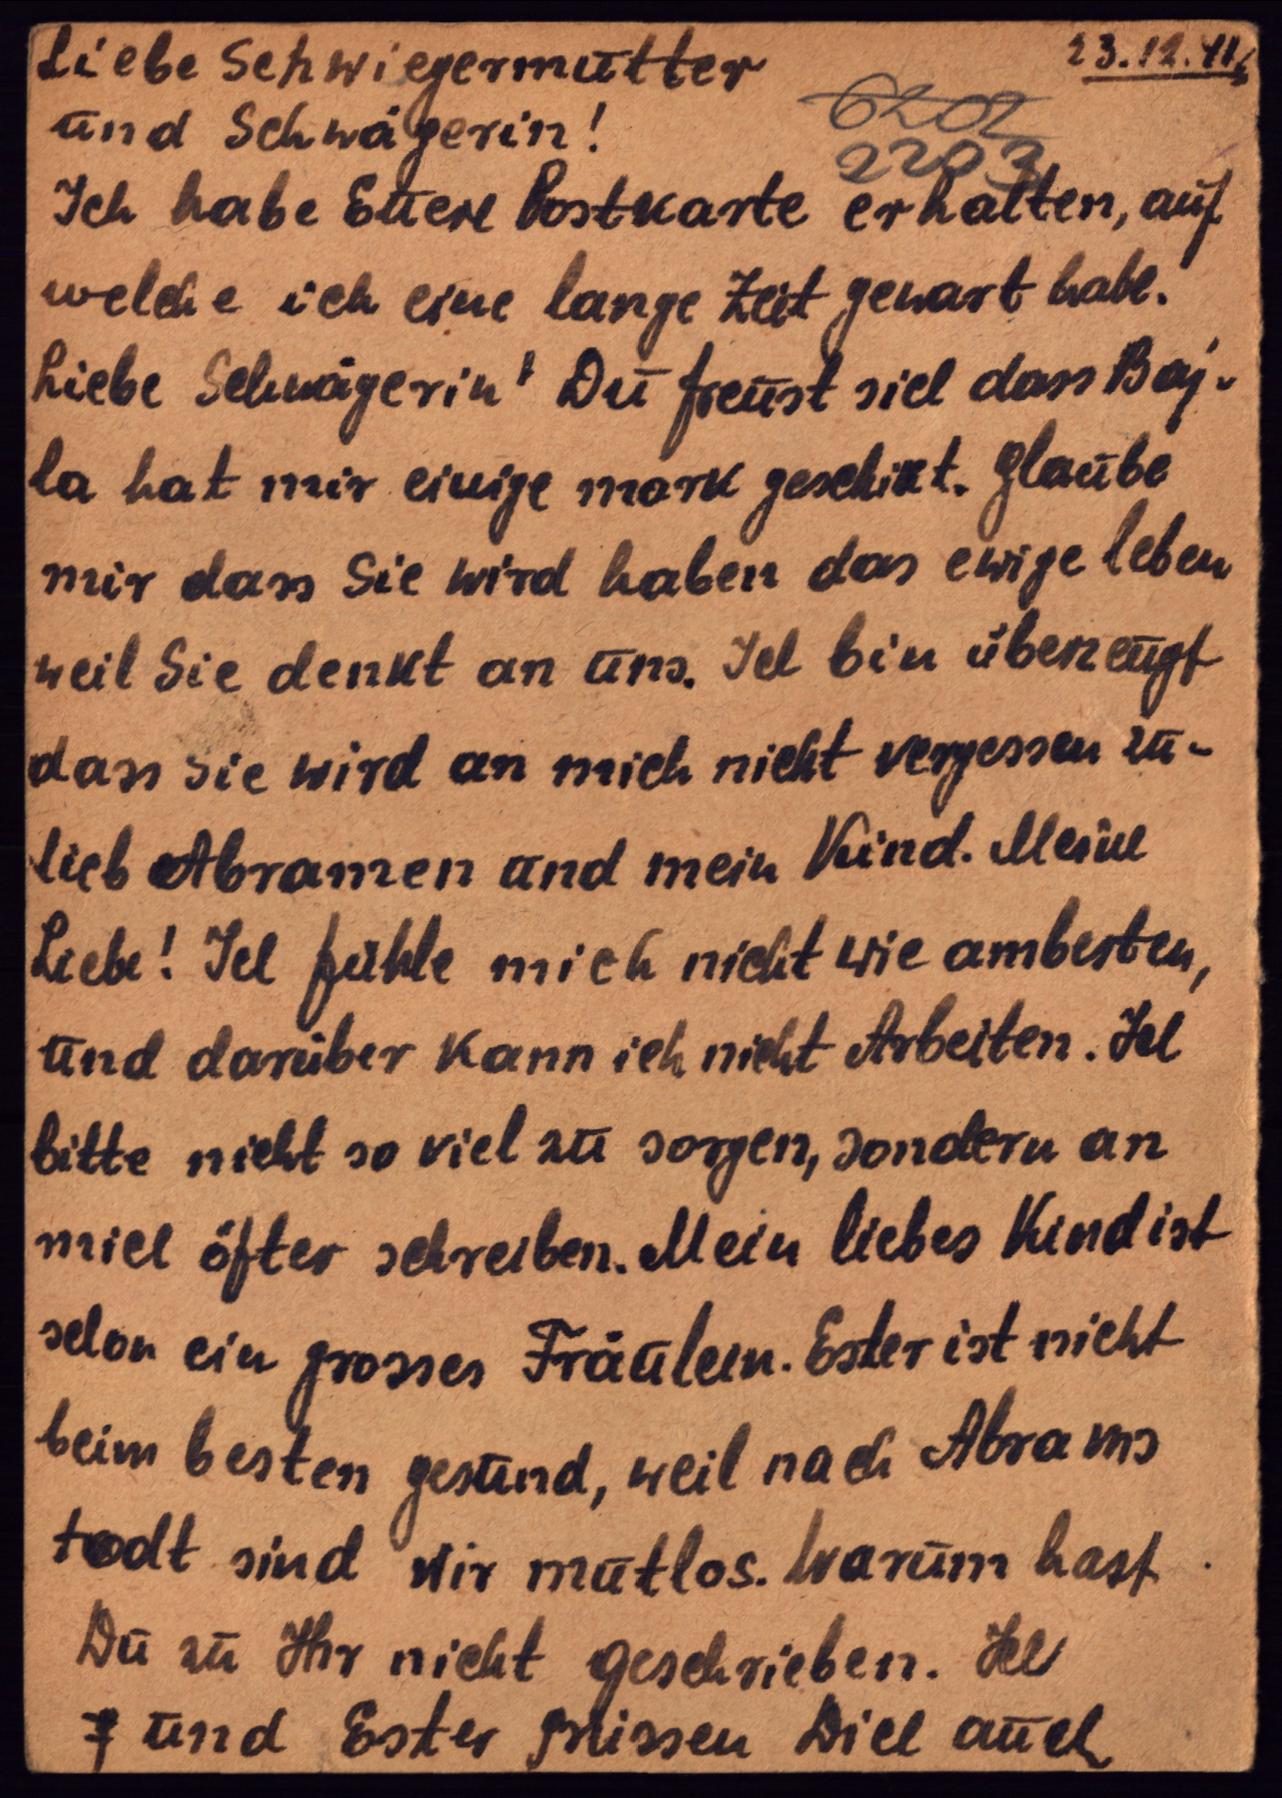 23.12.41
Liebe Schwiegermutter
und Schwägerin!
6202
2203
Ich habe Euere Postkarte erhalten, auf
welche ich eine lange Zeit gewart habe.
Liebe Schwägerin! Du freust sich dass Baj-
la hat mir einige mark geschikt. Glaube
mir dass Sie wird haben das ewige leben
weil Sie denkt an uns. Ich bin überzeugt
dass Sie wird an mich nicht vergessen zu-
lieb Abramen und mein Kind. Meine
Liebe! Ich fühle mich nicht wie ambesten,
und darüber kann ich nicht Arbeiten. Ich
bitte nicht so viel zu sorgen, sondern an
mich öfter schreiben. Mein liebes Kind ist
schon ein grosses Fräulein. Ester ist nicht
beim besten gesund, weil nach Abrams
todt sind wir mutlos. Warum hast
Du zu Ihr nicht geschrieben. Ich
und Ester grüssen Dich auch